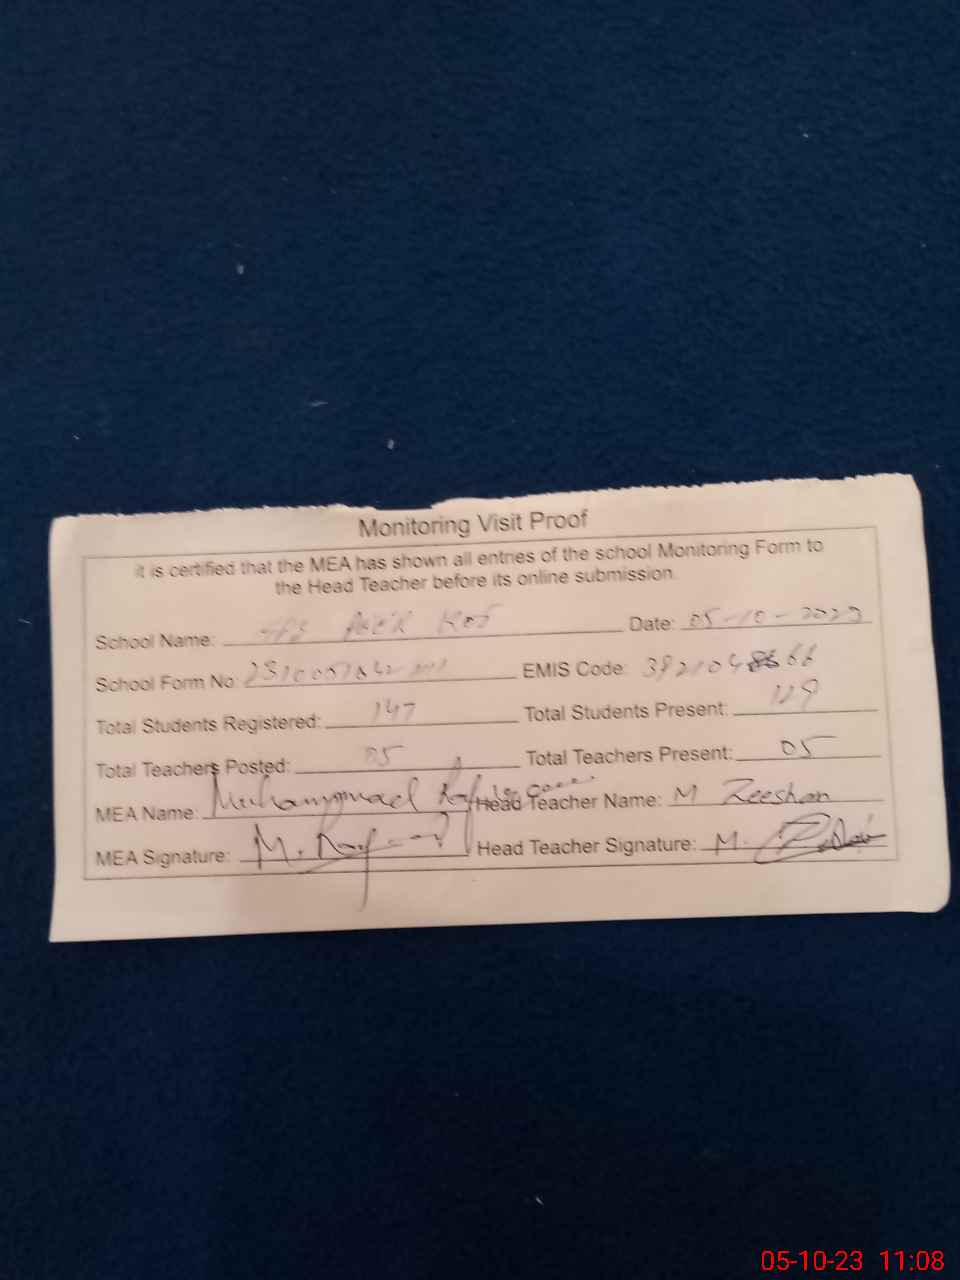 Monitoring Visit Proof
it is certified that the MEA has shown all entries of the school Monitoring Form to
the Head Teacher before its online submission.
School Name: Kot Date: 05-10-2023
School Form No: EMIS Code:
Total Students Registered: 147 Total Students Present: 129
Total Teachers Posted: 05 Total Teachers Present: 05
MEA Name: Muhammad Head Teacher Name: M Zeeshan
MEA Signature: M. Head Teacher Signature: M.
05-10-23 11:08